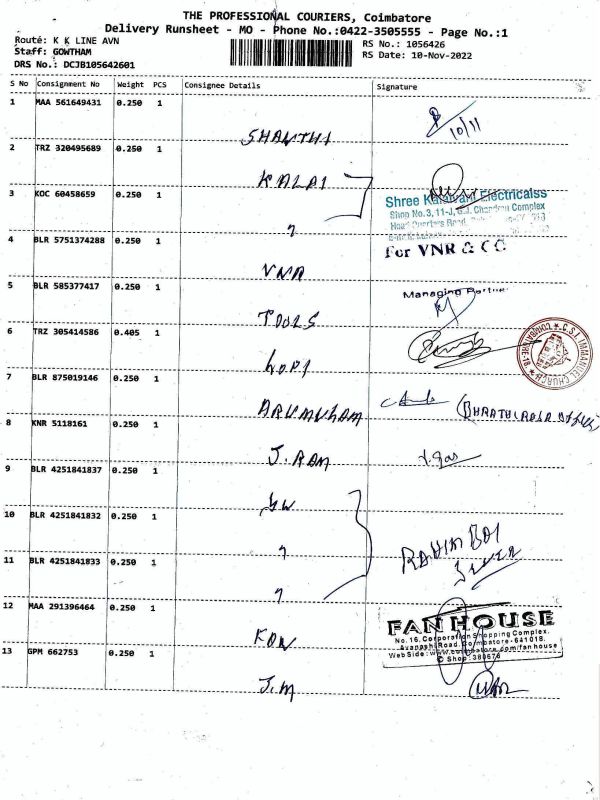 THE PROFESSIONAL COURIERS, Coimbatore
Delivery Runsheet - MO - Phone No.:0422-3505555 - Page No.:1
Route: K K LINE AVN
RS No.: 1056426
Staff: GOWTHAM
RS Date: 10-Nov-2022
DRS No.: DCJB105642601
S No Consignment No Weight PCS Consignee Details Signature
1 MAA 561649431 0.250 1
10/11
SHANTHI
2 TRZ 320495689 0.250 1
KALAI
3 KOC 60458659 0.250 1
Shree Kalaivani Electricalss
Shop No.3, 11-J, G.J. Chandru Complex
"
4 BLR 5751374288 0.250 1
For VNR & CO
VNR
5 BLR 585377417 0.250 1
Managing Partner
TOOLS
6 TRZ 305414586 0.405 1
C.S.I. IMMANUEL CHURCH
GOPI
7 BLR 875019146 0.250 1
ARUMUGAM
8 KNR 5118161 0.250 1
J. RAM
9 BLR 4251841837 0.250 1
10 BLR 4251841832 0.250 1
"
RAHIM BAI
11 BLR 4251841833 0.250 1
"
12 MAA 291396464 0.250 1
FAN HOUSE
No.16, Corporation Shopping Complex,
Avanashi Road, Coimbatore - 641018.
KON
Web Site : www.coimbatore.com/fanhouse
13 GPM 662753 0.250 1
✆ Shop : 380676
J.M